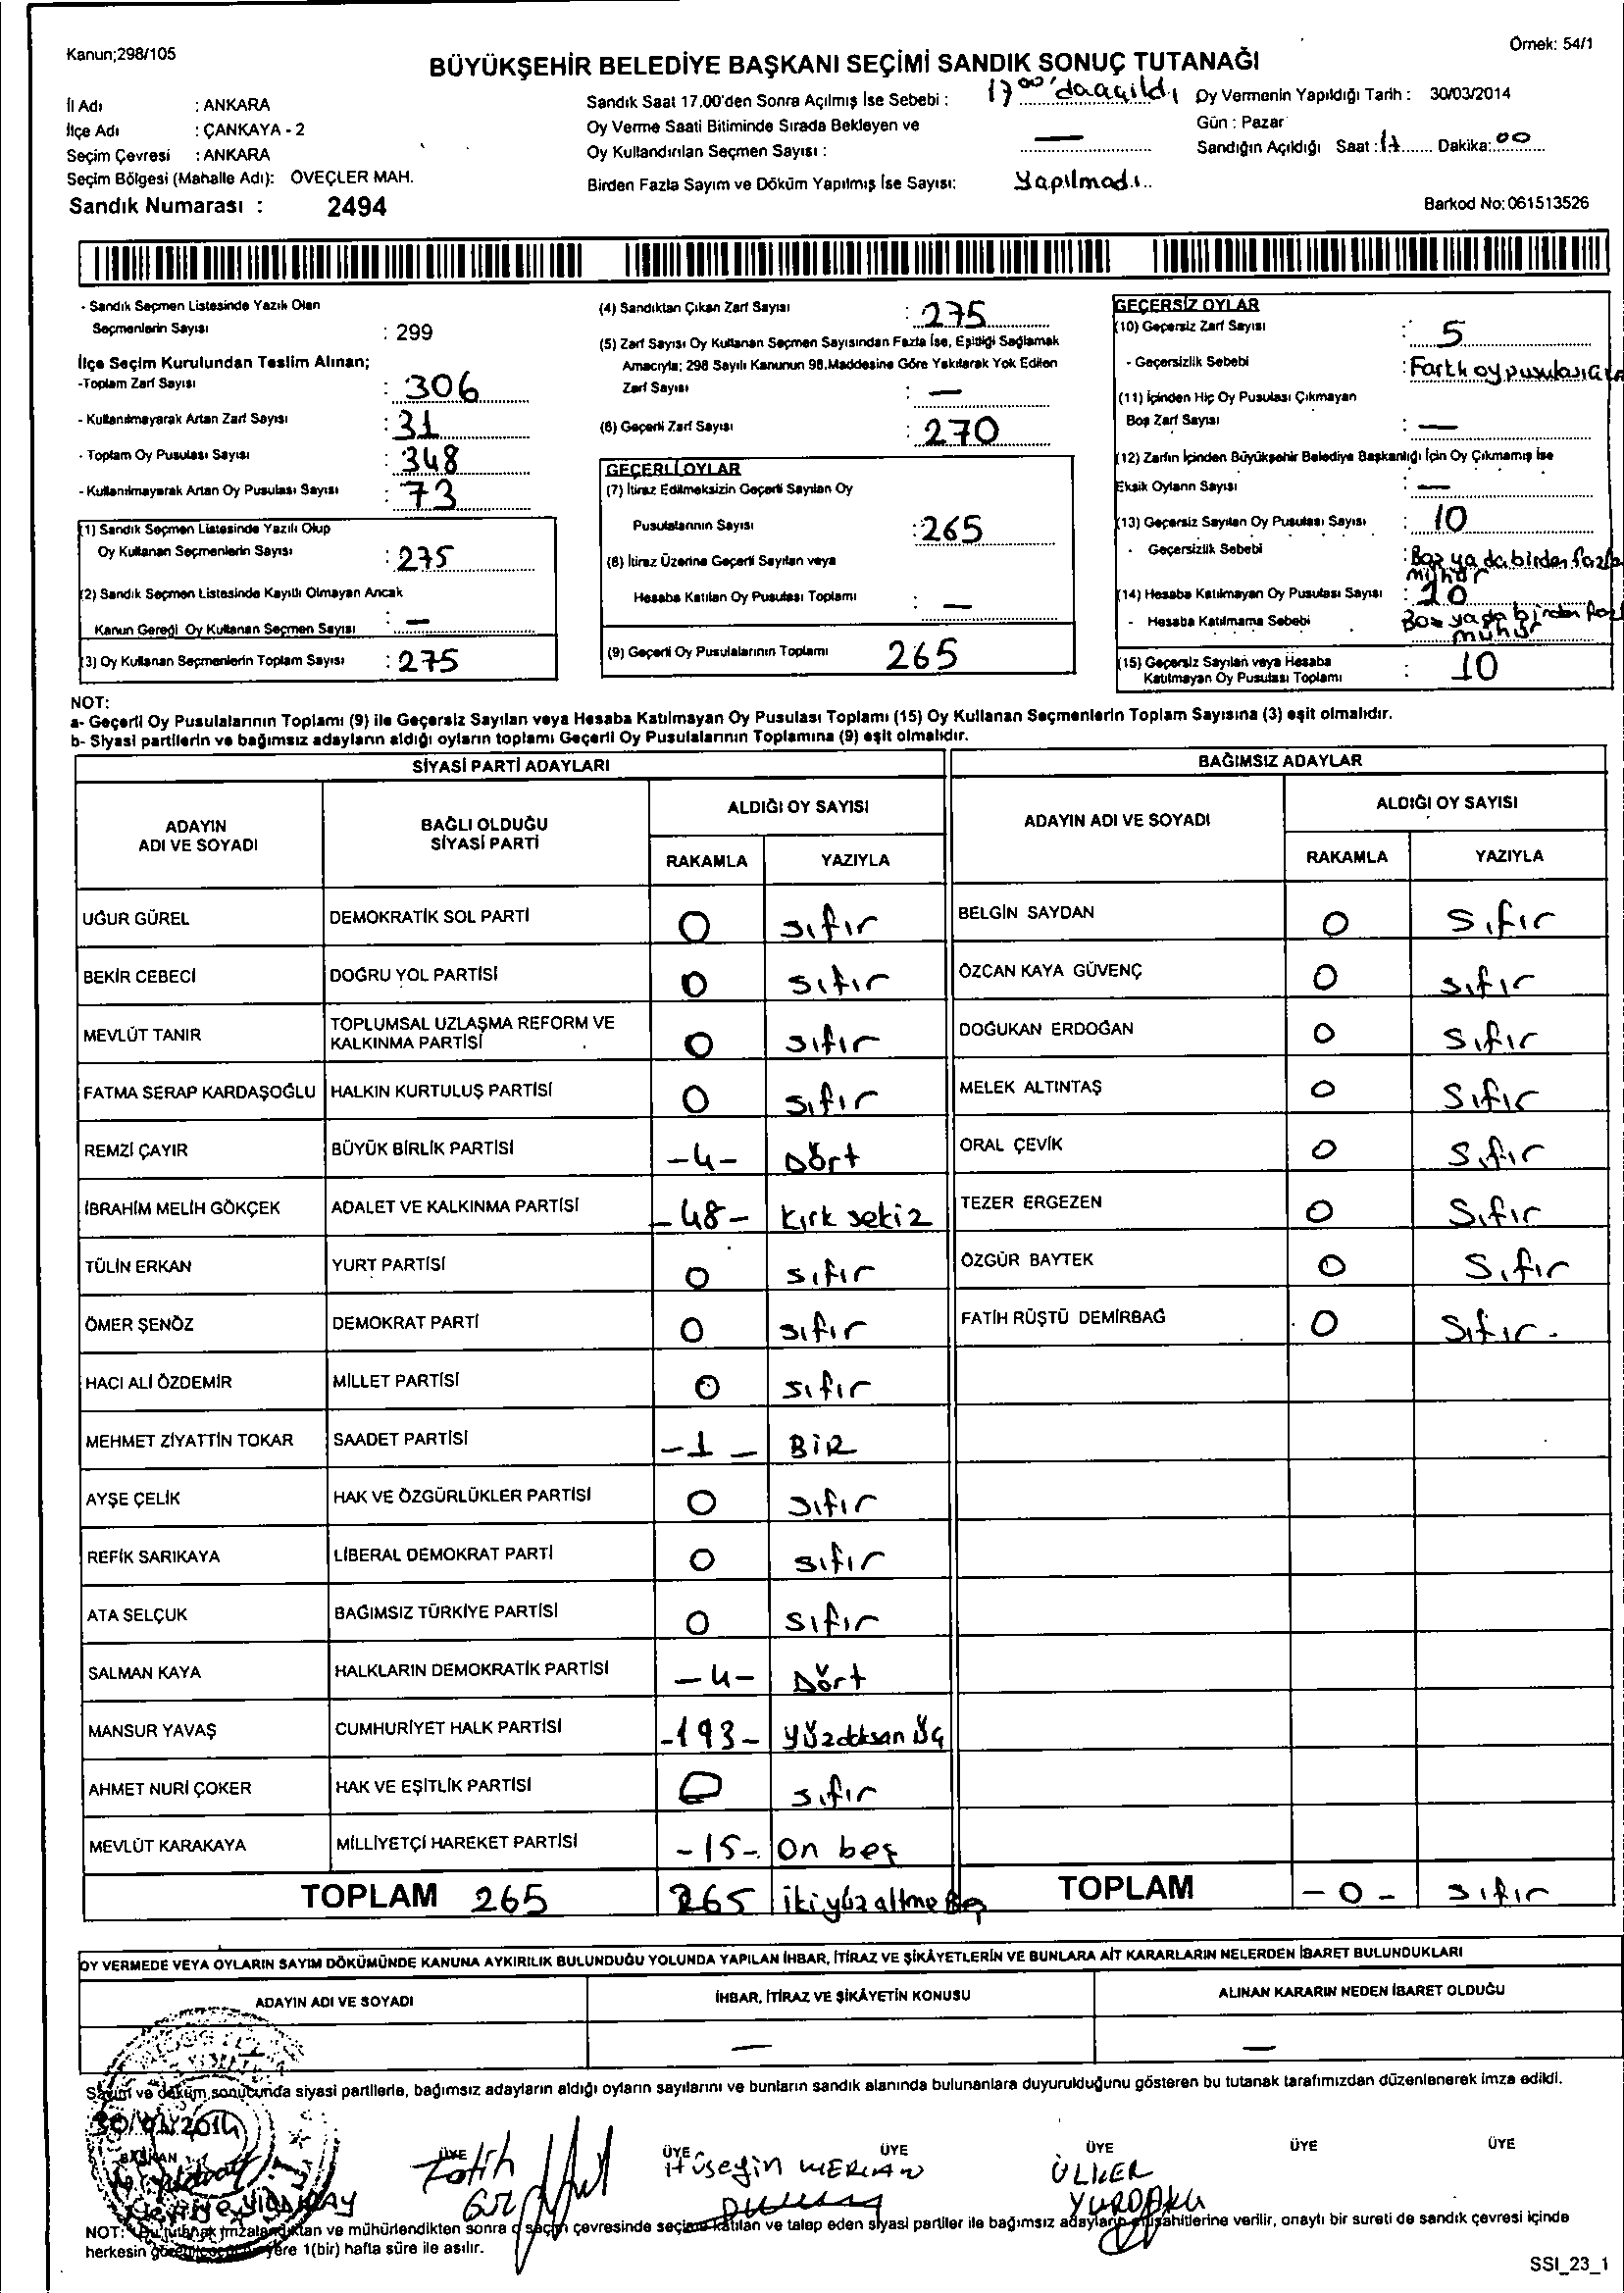 Kanun;298/105
Örnek: 54/1
BÜYÜKŞEHİR BELEDİYE BAŞKANI SEÇİMİ SANDIK SONUÇ TUTANAĞI
İl Adı : ANKARA
İlçe Adı : ÇANKAYA - 2
Seçim Çevresi : ANKARA
Seçim Bölgesi (Mahalle Adı): ÖVEÇLER MAH.
Sandık Numarası : 2494
Sandık Saat 17.00'den Sonra Açılmış İse Sebebi : 17 00'da açıldı
Oy Verme Saati Bitiminde Sırada Bekleyen ve
Oy Kullandırılan Seçmen Sayısı : —
Birden Fazla Sayım ve Döküm Yapılmış İse Sayısı: Yapılmadı..
Oy Vermenin Yapıldığı Tarih : 30/03/2014
Gün : Pazar
Sandığın Açıldığı Saat : 17 Dakika: 00
Barkod No: 061513526
- Sandık Seçmen Listesinde Yazılı Olan
Seçmenlerin Sayısı : 299
İlçe Seçim Kurulundan Teslim Alınan;
-Toplam Zarf Sayısı : 306
- Kullanılmayarak Artan Zarf Sayısı : 31
- Toplam Oy Pusulası Sayısı : 348
- Kullanılmayarak Artan Oy Pusulası Sayısı : 73
(1) Sandık Seçmen Listesinde Yazılı Olup
Oy Kullanan Seçmenlerin Sayısı : 275
(2) Sandık Seçmen Listesinde Kayıtlı Olmayan Ancak
Kanun Gereği Oy Kullanan Seçmen Sayısı : —
(3) Oy Kullanan Seçmenlerin Toplam Sayısı : 275
(4) Sandıktan Çıkan Zarf Sayısı : 275
(5) Zarf Sayısı Oy Kullanan Seçmen Sayısından Fazla İse, Eşitliği Sağlamak
Amacıyla; 298 Sayılı Kanunun 98.Maddesine Göre Yakılarak Yok Edilen
Zarf Sayısı : —
(6) Geçerli Zarf Sayısı : 270
GEÇERLİ OYLAR
(7) İtiraz Edilmeksizin Geçerli Sayılan Oy
Pusulalarının Sayısı : 265
(8) İtiraz Üzerine Geçerli Sayılan veya
Hesaba Katılan Oy Pusulası Toplamı : —
(9) Geçerli Oy Pusulalarının Toplamı 265
GEÇERSİZ OYLAR
(10) Geçersiz Zarf Sayısı : 5
- Geçersizlik Sebebi : Farklı oy pusulası
(11) İçinden Hiç Oy Pusulası Çıkmayan
Boş Zarf Sayısı : —
(12) Zarfın İçinden Büyükşehir Belediye Başkanlığı İçin Oy Çıkmamış İse
Eksik Oyların Sayısı : —
(13) Geçersiz Sayılan Oy Pusulası Sayısı : 10
- Geçersizlik Sebebi : Boş ya da birden fazla
mühür
(14) Hesaba Katılmayan Oy Pusulası Sayısı : 10
- Hesaba Katılmama Sebebi Boş ya da birden faz
mühür
(15) Geçersiz Sayılan veya Hesaba
Katılmayan Oy Pusulası Toplamı : 10
NOT:
a- Geçerli Oy Pusulalarının Toplamı (9) ile Geçersiz Sayılan veya Hesaba Katılmayan Oy Pusulası Toplamı (15) Oy Kullanan Seçmenlerin Toplam Sayısına (3) eşit olmalıdır.
b- Siyasi partilerin ve bağımsız adayların aldığı oyların toplamı Geçerli Oy Pusulalarının Toplamına (9) eşit olmalıdır.
SİYASİ PARTİ ADAYLARI
ADAYIN ADI VE SOYADI BAĞLI OLDUĞU SİYASİ PARTİ ALDIĞI OY SAYISI
RAKAMLA YAZIYLA
UĞUR GÜREL DEMOKRATİK SOL PARTİ 0 sıfır
BEKİR CEBECİ DOĞRU YOL PARTİSİ 0 sıfır
MEVLÜT TANIR TOPLUMSAL UZLAŞMA REFORM VE KALKINMA PARTİSİ 0 sıfır
FATMA SERAP KARDAŞOĞLU HALKIN KURTULUŞ PARTİSİ 0 sıfır
REMZİ ÇAYIR BÜYÜK BİRLİK PARTİSİ -4- Dört
İBRAHİM MELİH GÖKÇEK ADALET VE KALKINMA PARTİSİ -48- kırk sekiz
TÜLİN ERKAN YURT PARTİSİ 0 sıfır
ÖMER ŞENÖZ DEMOKRAT PARTİ 0 sıfır
HACI ALİ ÖZDEMİR MİLLET PARTİSİ 0 sıfır
MEHMET ZİYATTİN TOKAR SAADET PARTİSİ -1- BİR
AYŞE ÇELİK HAK VE ÖZGÜRLÜKLER PARTİSİ 0 sıfır
REFİK SARIKAYA LİBERAL DEMOKRAT PARTİ 0 sıfır
ATA SELÇUK BAĞIMSIZ TÜRKİYE PARTİSİ 0 sıfır
SALMAN KAYA HALKLARIN DEMOKRATİK PARTİSİ -4- Dört
MANSUR YAVAŞ CUMHURİYET HALK PARTİSİ -193- yüzdoksan üç
AHMET NURİ ÇOKER HAK VE EŞİTLİK PARTİSİ 0 sıfır
MEVLÜT KARAKAYA MİLLİYETÇİ HAREKET PARTİSİ -15- On beş
TOPLAM 265 265
BAĞIMSIZ ADAYLAR
ADAYIN ADI VE SOYADI ALDIĞI OY SAYISI
RAKAMLA YAZIYLA
BELGİN SAYDAN 0 Sıfır
ÖZCAN KAYA GÜVENÇ 0 sıfır
DOĞUKAN ERDOĞAN 0 Sıfır
MELEK ALTINTAŞ 0 Sıfır
ORAL ÇEVİK 0 Sıfır
TEZER ERGEZEN 0 Sıfır
ÖZGÜR BAYTEK 0 Sıfır
FATİH RÜŞTÜ DEMİRBAĞ 0 Sıfır.
TOPLAM -0- sıfır
OY VERMEDE VEYA OYLARIN SAYIM DÖKÜMÜNDE KANUNA AYKIRILIK BULUNDUĞU YOLUNDA YAPILAN İHBAR, İTİRAZ VE ŞİKÂYETLERİN VE BUNLARA AİT KARARLARIN NELERDEN İBARET BULUNDUKLARI
ADAYIN ADI VE SOYADI İHBAR, İTİRAZ VE ŞİKÂYETİN KONUSU ALINAN KARARIN NEDEN İBARET OLDUĞU
— —
Sayım ve döküm sonucunda siyasi partilerle, bağımsız adayların aldığı oyların sayılarını ve bunların sandık alanında bulunanlara duyurulduğunu gösteren bu tutanak tarafımızdan düzenlenerek imza edildi.
30/03/2014
BAŞKAN ÜYE ÜYE ÜYE ÜYE ÜYE ÜYE
Fatih
Hüseyin MERCAN
ÜLKER
NOT: Bu tutanak imzalandıktan ve mühürlendikten sonra o seçim çevresinde seçime katılan ve talep eden siyasi partiler ile bağımsız adayların müşahitlerine verilir, onaylı bir sureti de sandık çevresi içinde
herkesin yere 1(bir) hafta süre ile asılır.
SSI_23_1